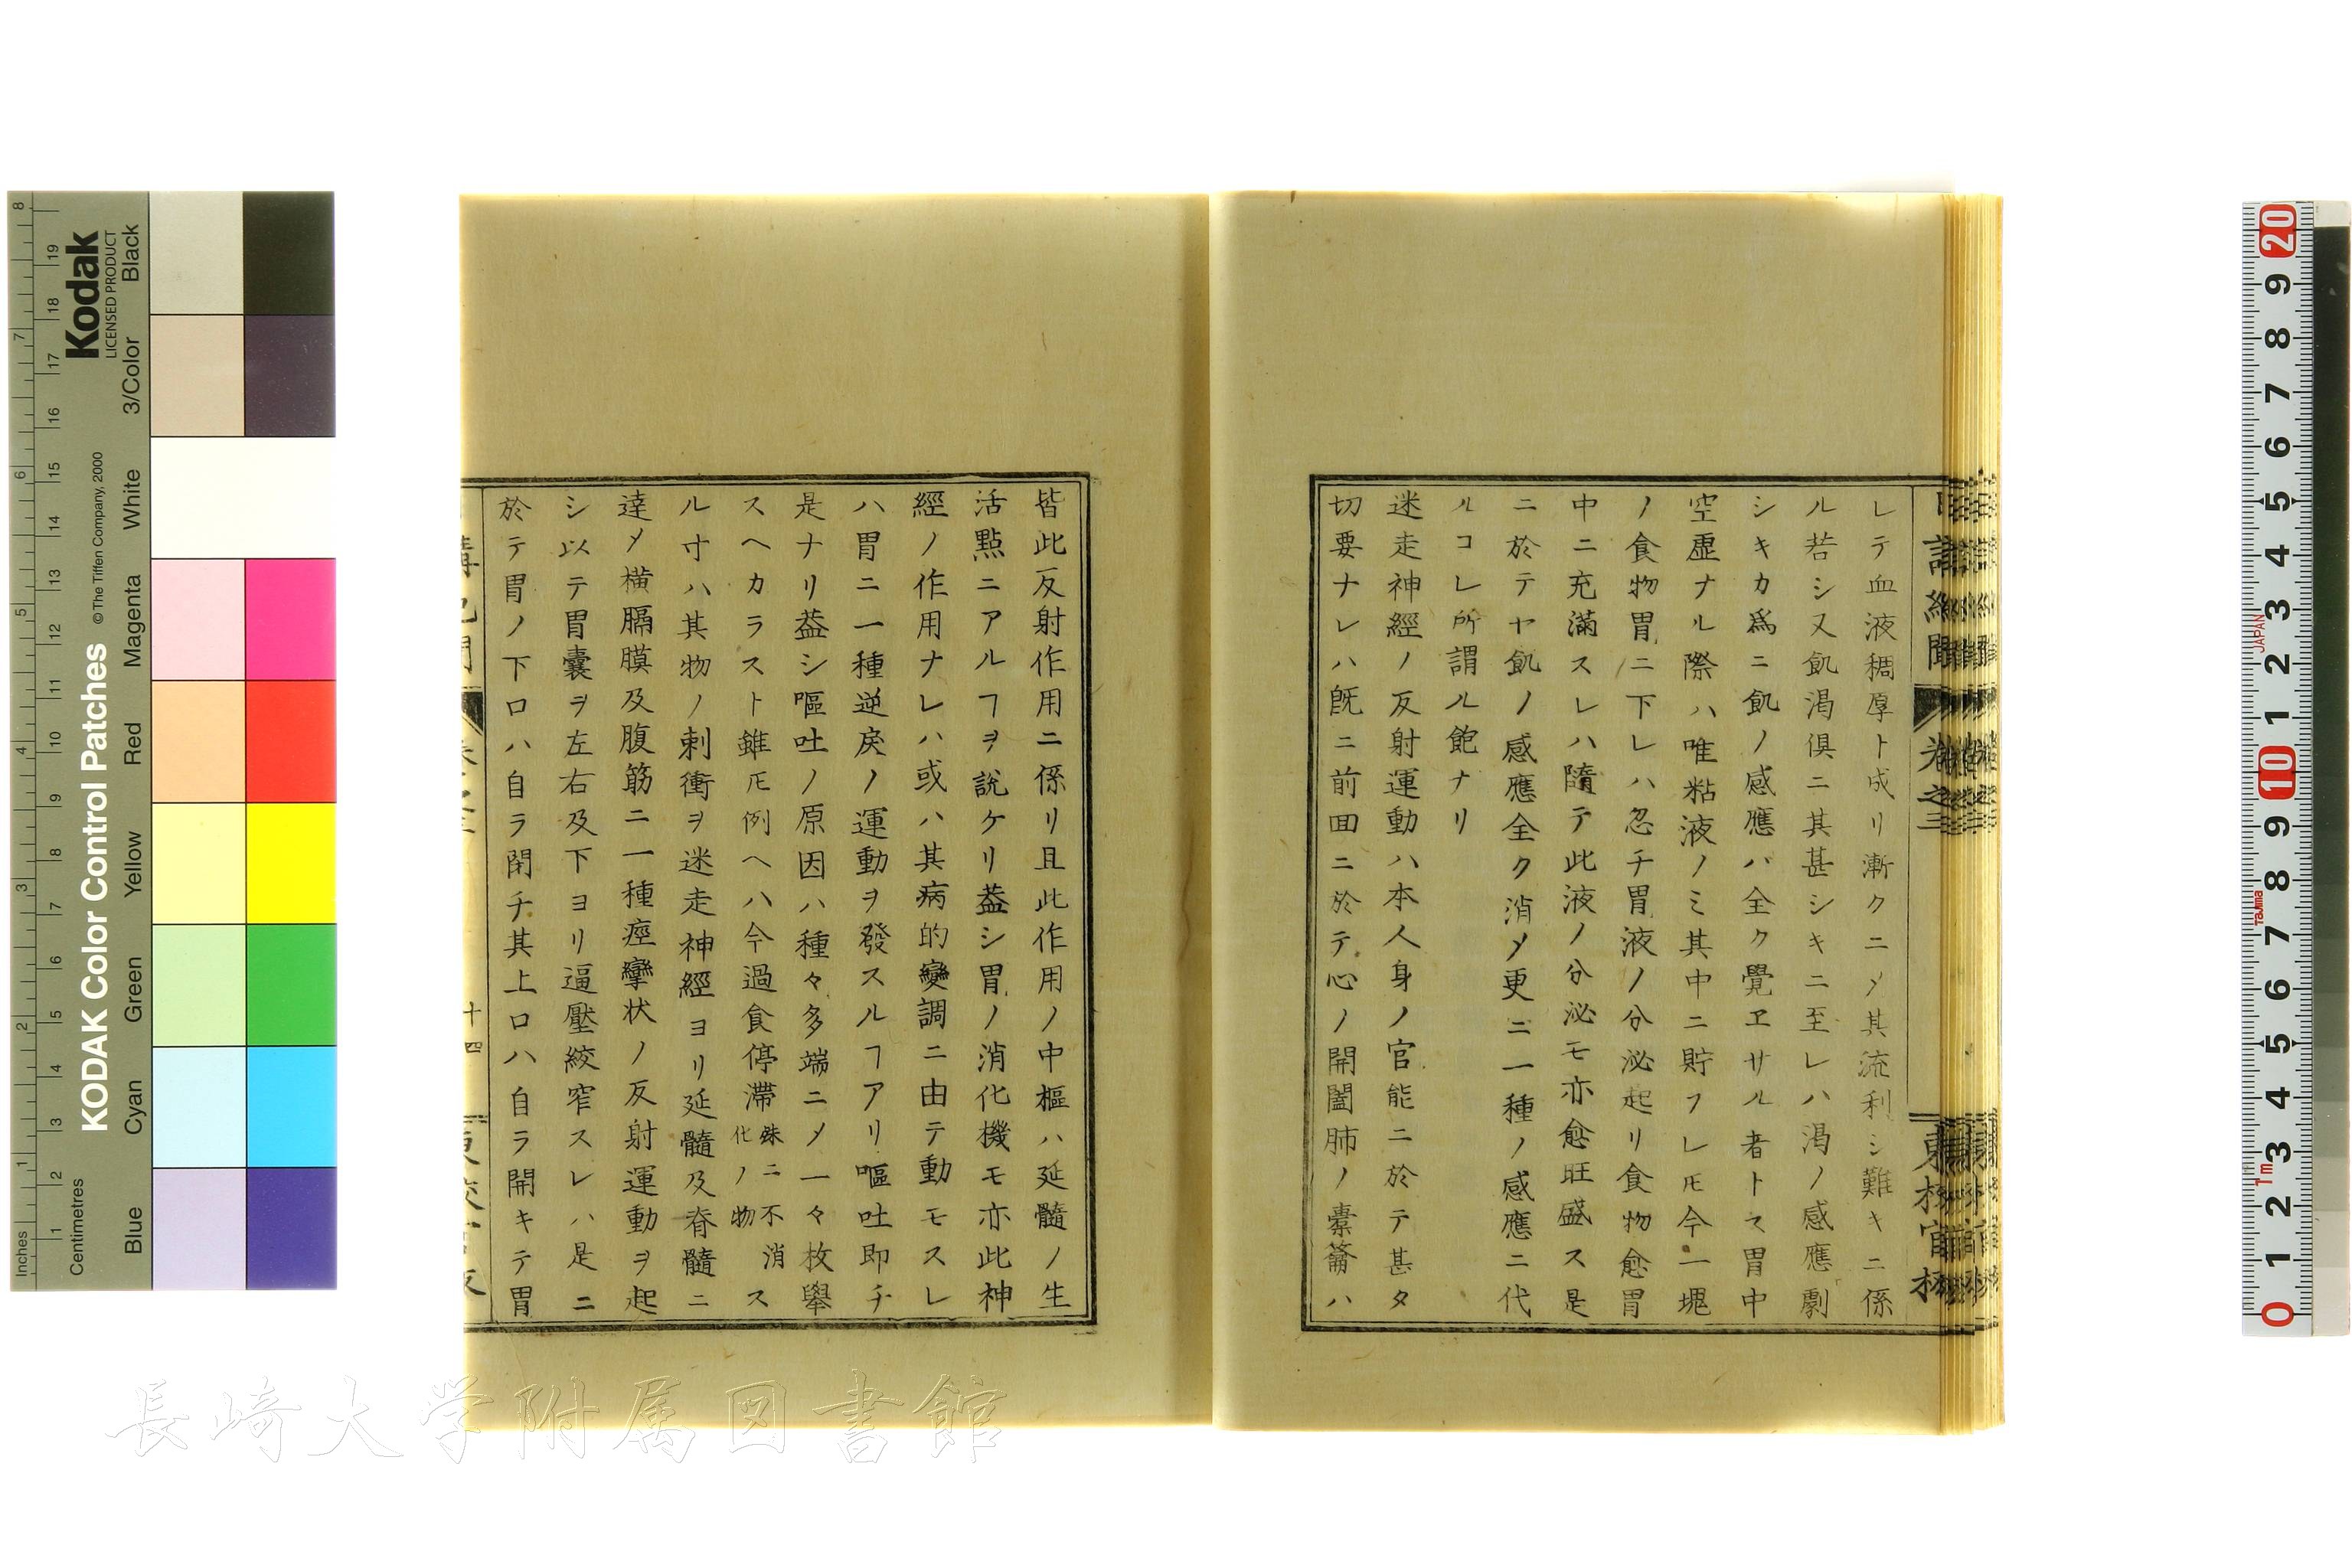 レテ血液稠厚ト成リ漸クニ〆其流利シ難キニ係
ル若シ又飢渇倶ニ其甚シキニ至レハ渇ノ感應劇
シキカ爲ニ飢ノ感應バ全ク覺ヱサル者トス胃中
空虚ナル際ハ唯粘液ノミ其中ニ貯フレ𪜈今一塊
ノ食物胃ニ下レハ忽チ胃液ノ分泌起リ食物愈胃
中ニ充滿スレハ隨テ此液ノ分泌モ亦愈旺盛ス是
ニ於テヤ飢ノ感應全ク消〆更ニ一種ノ感應ニ代
ルコレ所謂ル飽ナリ
迷走神經ノ反射運動ハ本人身ノ官能ニ於テ甚タ
切要ナレハ既ニ前回ニ於テ心ノ開闔肺ノ橐籥ハ
皆此反射作用ニ係リ且此作用ノ中樞ハ延髓ノ生
活點ニアルヿヲ說ケリ葢シ胃ノ消化機モ亦此神
經ノ作用ナレハ或ハ其病的變調ニ由テ動モスレ
ハ胃ニ一種逆戾ノ運動ヲ發スルヿアリ嘔吐即チ
是ナリ葢シ嘔吐ノ原因ハ種々多端ニ〆一々枚舉
スヘカラスト雖𪜈例ヘハ今過食停滯殊ニ不消化ノ物ス
ル寸ハ其物ノ刺衝ヲ迷走神經ヨリ延髓及脊髓ニ
達〆横膈膜及腹筋ニ一種痙攣状ノ反射運動ヲ起
シ以テ胃囊ヲ左右及下ヨリ逼壓絞窄スレハ是ニ
於テ胃ノ下口ハ自ラ閉チ其上口ハ自ラ開キテ胃
十四
卷之三
長崎大学附属図書館
KODAK Color Control Patches
© The Tiffen Company, 2000
Kodak
LICENSED PRODUCT
Inches
Centimetres
Blue
Cyan
Green
Yellow
Red
Magenta
White
3/Color
Black
JAPAN
Tajima
1m